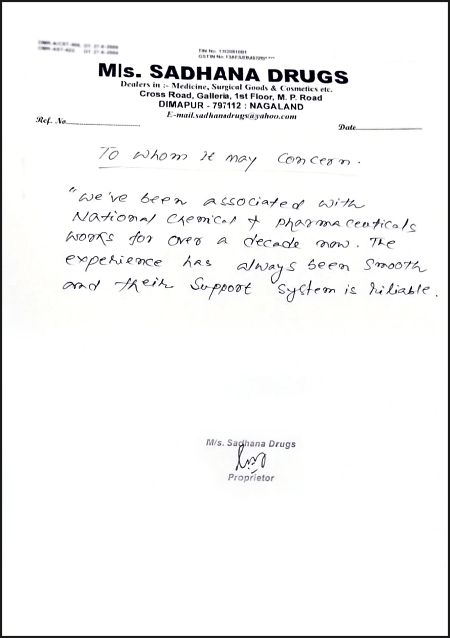 M/s. SADHANA DRUGS
Dealers in :- Medicine, Surgical Goods & Cosmetics etc.
Cross Road, Galleria, 1st Floor, M. P. Road
DIMAPUR - 797112 : NAGALAND
E-mail.sadhanadrugs@yahoo.com
Ref. No. Date
To whom it may concern.
"We've been associated with
National Chemical & pharmaceuticals
works for over a decade now. The
experience has always been smooth
and their support system is reliable.
M/s. Sadhana Drugs
Proprietor